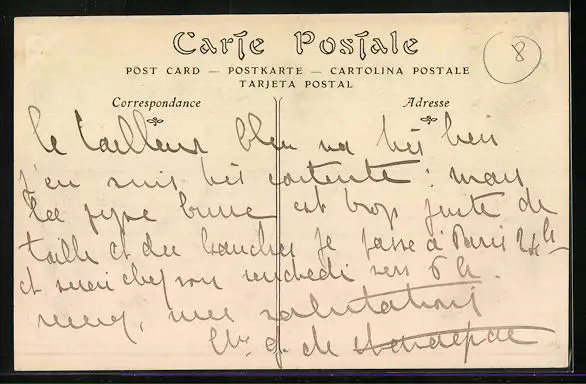 Carte Postale
8
POST CARD — POSTKARTE — CARTOLINA POSTALE
TARJETA POSTAL
Correspondance
Adresse
le tailleur bleu va très bien
j'en suis très contente : mais
la jupe est trop juste de
taille et de hanches je passe à Paris 24 h
et serai chez vous vendredi vers 6 h.
mes salutations
de